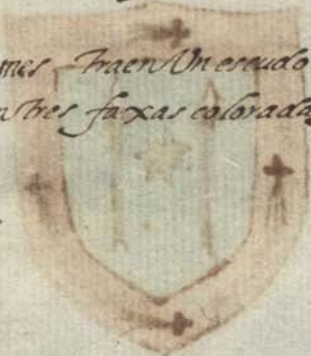 traen Un escudo
tres faxas coloradas